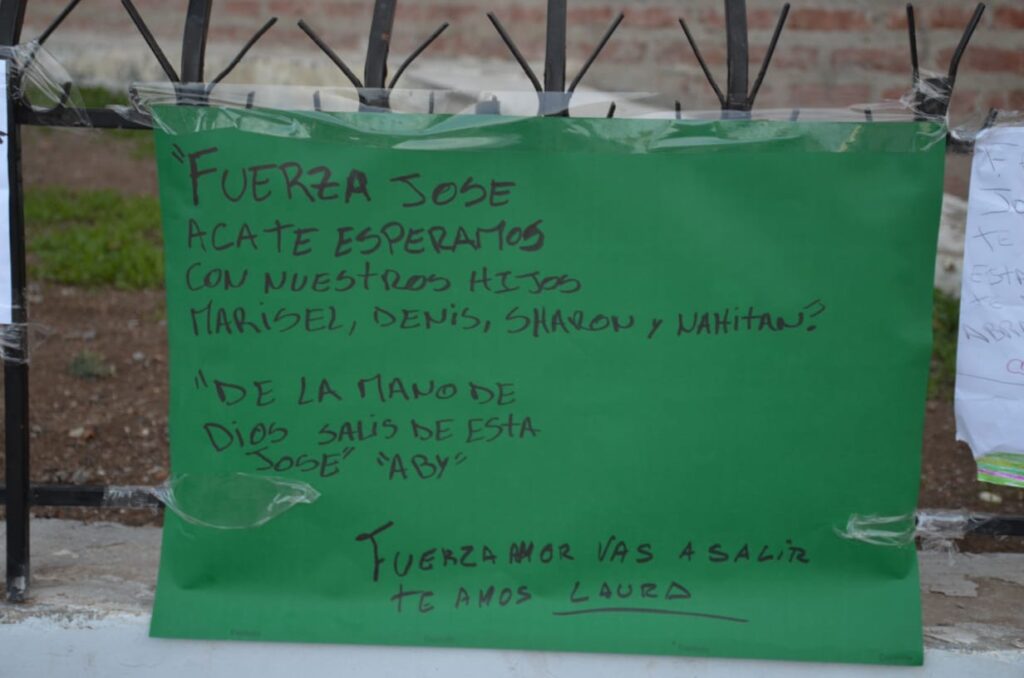 "FUERZA JOSE
ACA TE ESPERAMOS
CON NUESTROS HIJOS
MARISEL, DENIS, SHARON y NAHITAN?
"DE LA MANO DE
DIOS SALIS DE ESTA
JOSE" "ABY"
FUERZA AMOR VAS A SALIR
TE AMOS LAURA
TE